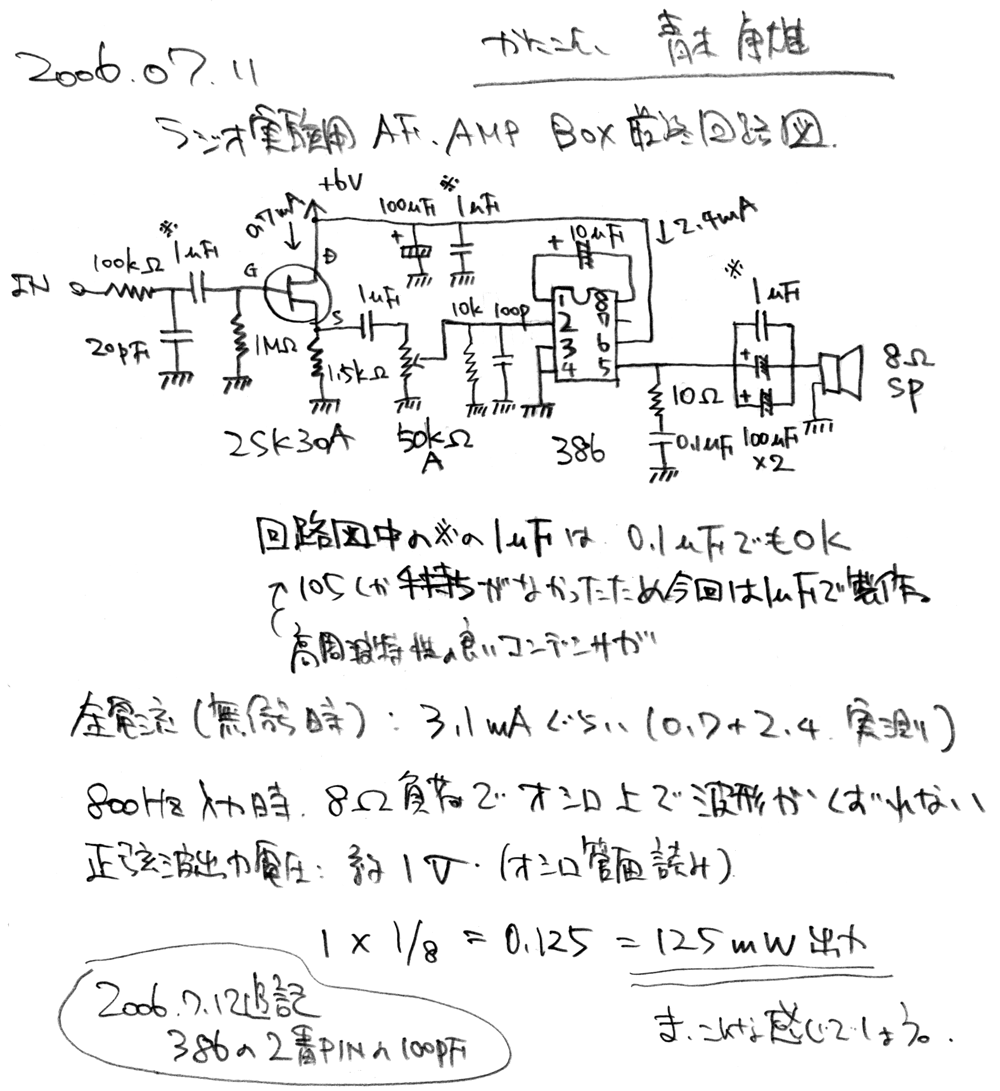 2006.07.11
かたこん、 青木 康雄
ラジオ実験用 AF.AMP BOX 最終回路図.
+6V
0.7mA
100μF
※
1μF
2.4mA
10μF
※
1μF
100kΩ
IN
G
D
S
1μF
10k
100p
※
1μF
20pF
1MΩ
1.5kΩ
1
2
3
4
8
7
6
5
8Ω
SP
10Ω
0.1μF
100μF
×2
2SK30A
50kΩ
A
386
回路図中の※の1μFは 0.1μFでもOK
105しか手持ちがなかったため今回は1μFで製作。
高周波特性の良いコンデンサが
全電流(無信号時): 3.1mAぐらい (0.7+2.4 実測)
800Hz入力時. 8Ω負荷でオシロ上で波形がくずれない
正弦波出力電圧: 約1V. (オシロ管面読み)
1 × 1/8 = 0.125 = 125mW出力
ま、こんな感じでしょう。
2006.7.12追記
386の2番PINの100pF